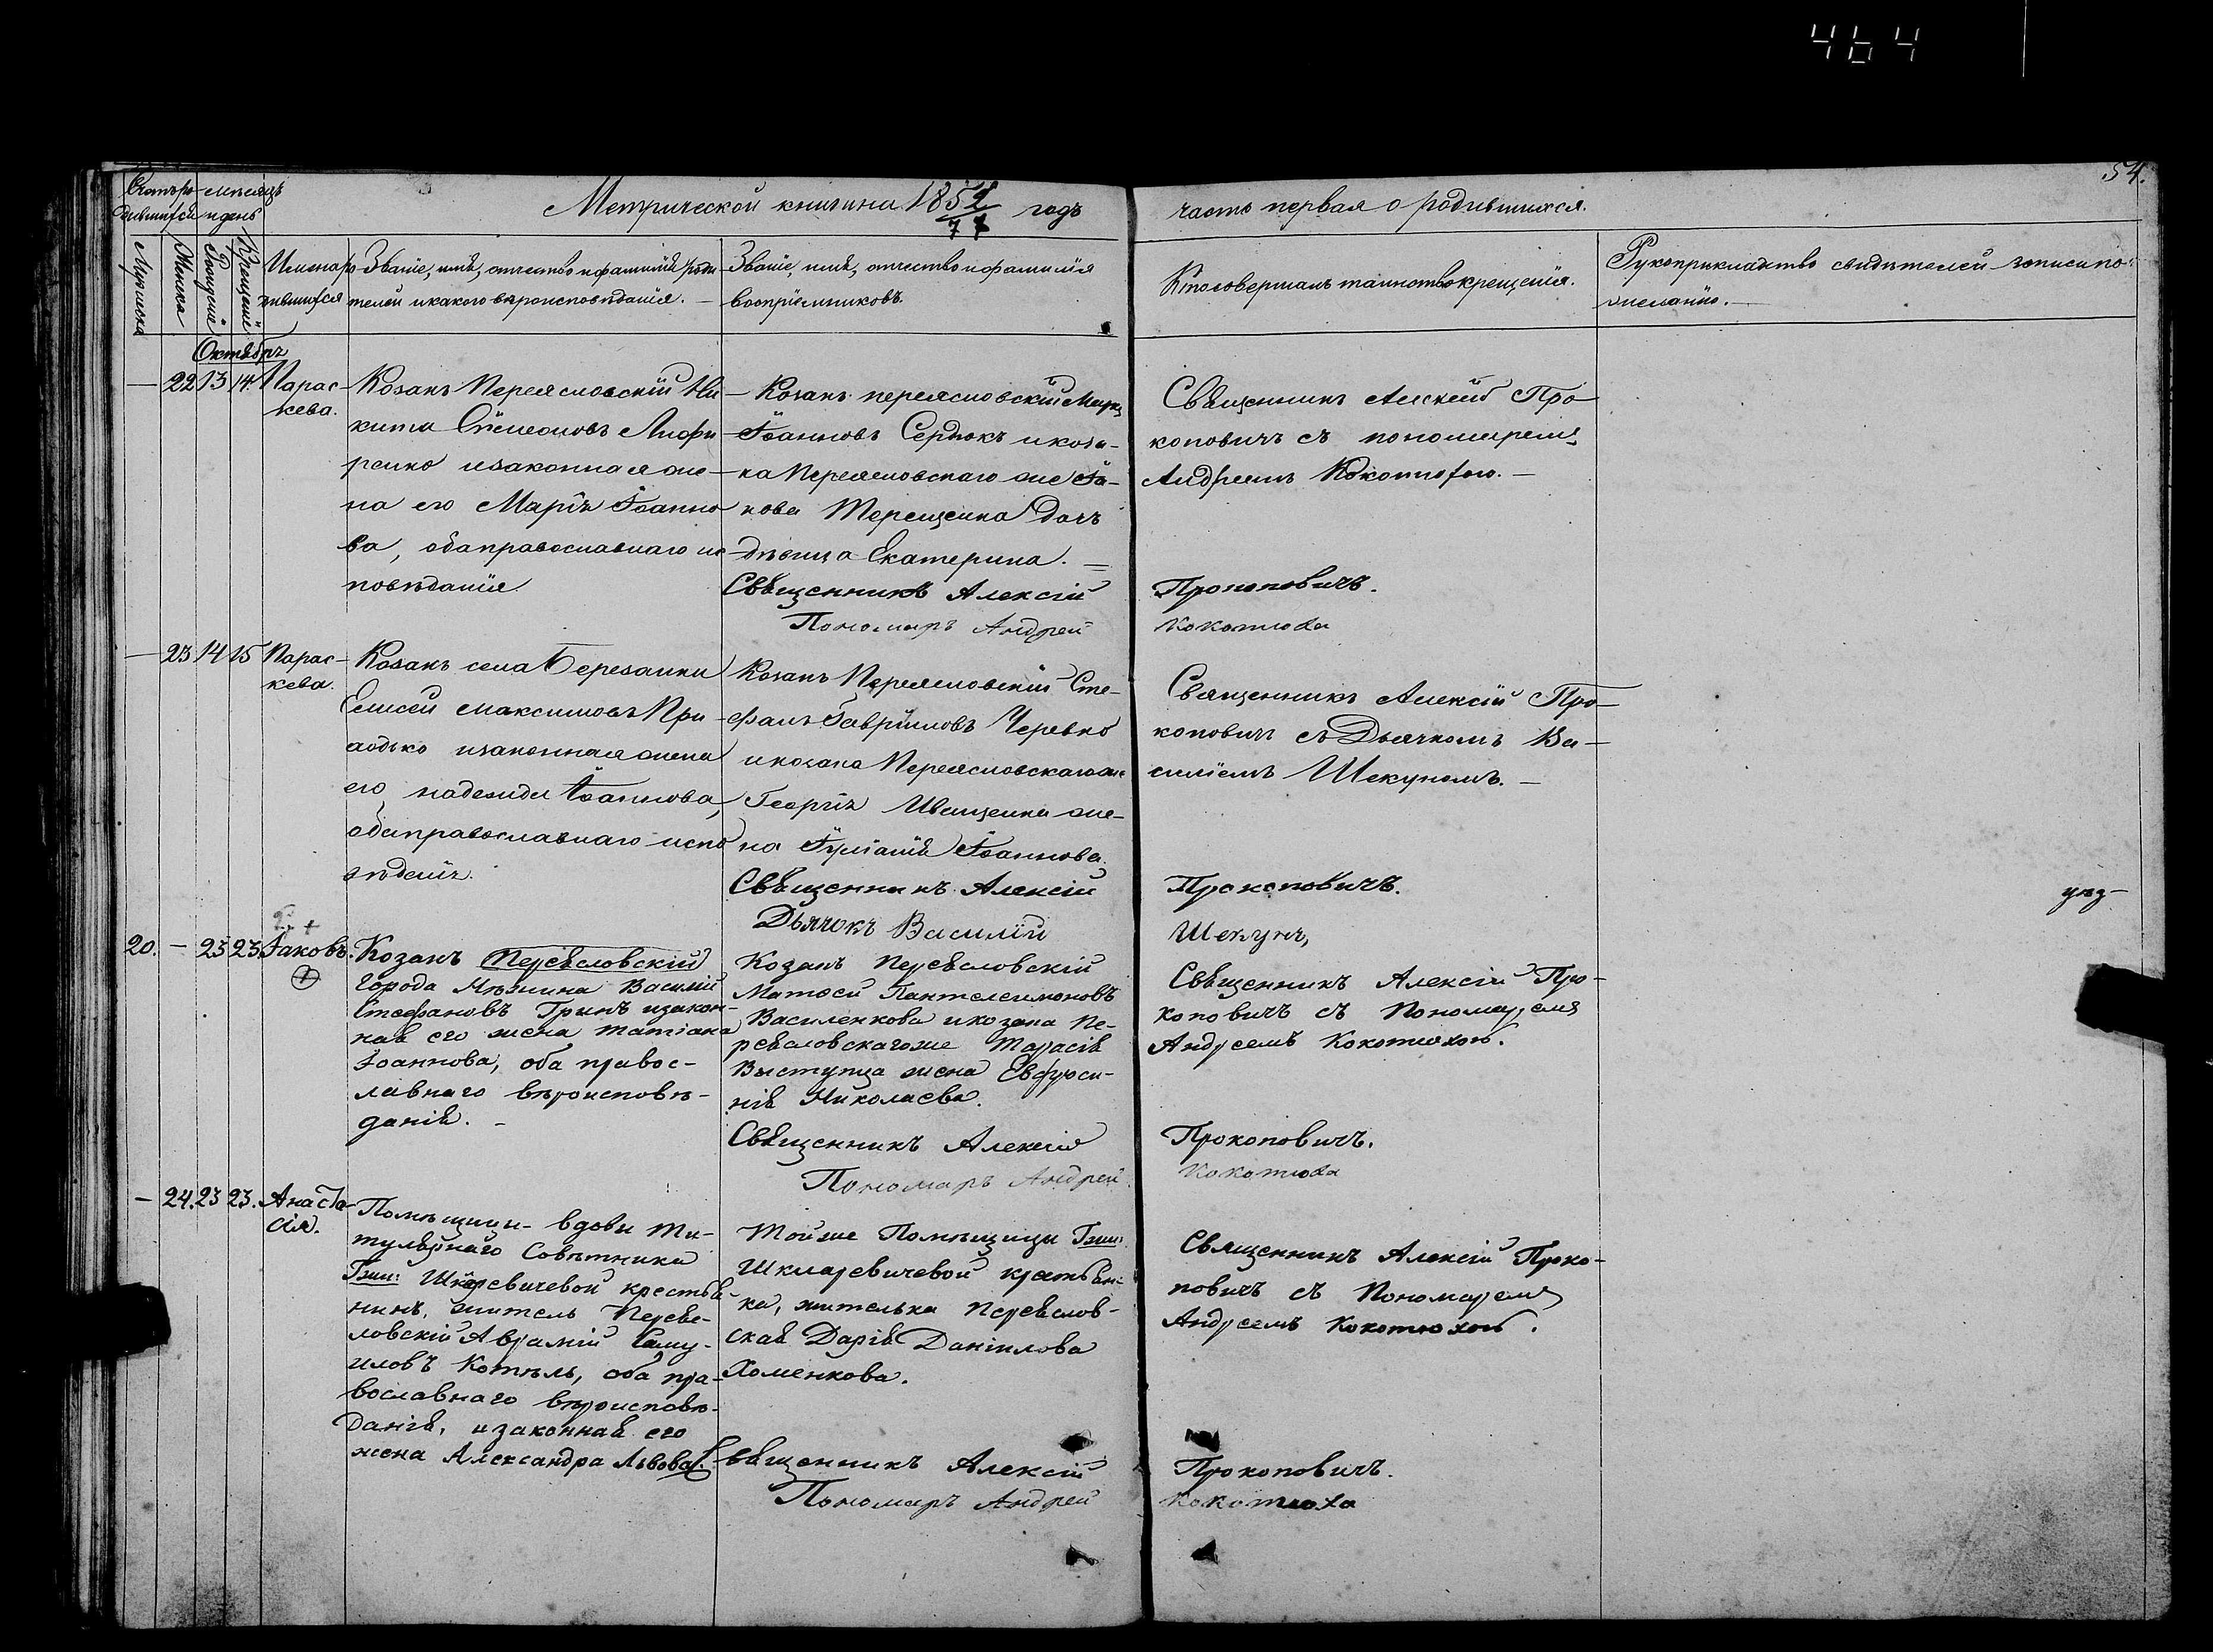 464
54.
Счетъ ро- мѣсяцъ
дившихся и день
Метрической книги на 1857 годъ
77
часть первая о родившихся.
Мужеска
Женска
Рожденіе
Крещеніе
Имена ро-
дившихся
Званіе, имя, отчество и фамилія роди-
телей и какого вѣроисповѣданія. —
Званіе, имя, отчество и фамилія
воспріемниковъ.
Кто совершалъ таинство крещенія.
Рукоприкладство свидѣтелей записи по
желанію. —
Октябрь
— 22 13 14. Парас-
кева.
Козакъ Переясловскій Ни-
кита Сѵмеоновъ
и законная же-
на его Марія Іоанно
ва, оба православнаго ис
повѣданія.
Козакъ переясловскій Марко
Іоанновъ Сердюкъ и коза-
ка Переясловскаго же Іа-
кова Терещенка дочь
дѣвица Екатерина. —
Священникъ Алексій
Пономарь Андрей
Священникъ Алексій Про-
коповичъ съ пономаремъ
Андреемъ Кокотюхою. —
Прокоповичъ.
Кокотюха
— 23 14 15 Парас-
кева.
Козакъ села Березанки
Елисей Максимовъ При-
ходько и законная жена
его Надежда Іоаннова,
оба православнаго испо
вѣданія.
Козакъ Переясловскій Сте-
фанъ Гавріиловъ Черевко
и козака Переясловскаго же
Георгія Иващенка же-
на Іуліанія Іоаннова.
Священникъ Алексій
Дьячокъ Василій
Священникъ Алексій Про-
коповичъ съ Дьячкомъ Ва-
силіемъ Шекуномъ. —
Прокоповичъ.
Шекунъ,
20. — 23 23 Іаковъ.
Козакъ Переясловскій
города Нѣжина Василій
Стефановъ Гринь и закон-
ная его жена Татіана
Іоаннова, оба правос-
лавнаго вѣроисповѣ-
данія. —
Козакъ Переясловскій
Матѳей Пантелеимоновъ
Василенково и козака Пе-
реясловскаго же Тарасія
Выступца жена Евфроси-
нія Николаева.
Священникъ Алексій
Пономарь Андрей
Священникъ Алексій Про-
коповичъ съ Пономаремъ
Андреемъ Кокотюхою.
Прокоповичъ.
Кокотюха
— 24. 23 23. Анаста-
сія.
Помѣщицы- вдовы Ти-
тулярнаго Совѣтника
Гжи: Шкляревичевой крестья
нинъ, житель Переяс-
ловскій Аврамій Саму-
иловъ Котѣль, оба пра-
вославнаго вѣроисповѣ-
данія, и законная его
жена Александра Львова.
Той же Помѣщицы Гжи:
Шкляревичевой крестьян-
ка, жителька Переяслов-
ская Дарія Даніилова
Хоменкова.
Священникъ Алексій
Пономарь Андрей
Священникъ Алексій Проко-
повичъ съ Пономаремъ
Андреемъ Кокотюхою.
Прокоповичъ.
Кокотюха